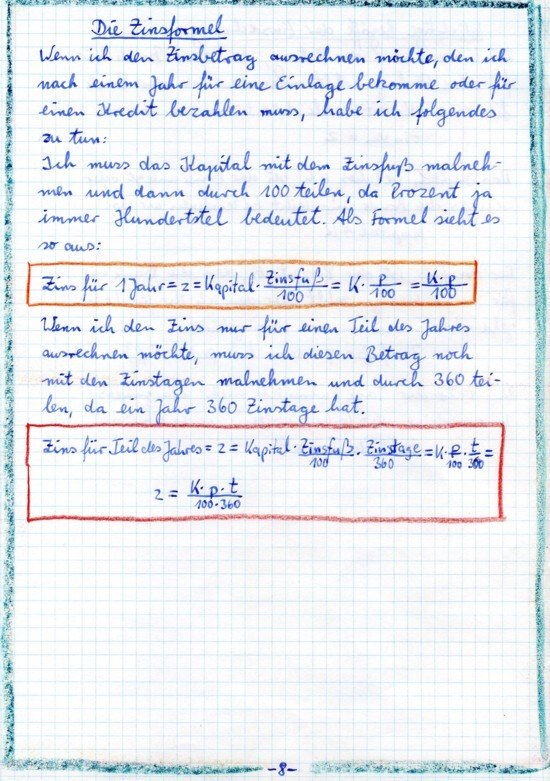 Die Zinsformel
Wenn ich den Zinsbetrag ausrechnen möchte, den ich
nach einem Jahr für eine Einlage bekomme oder für
einen Kredit bezahlen muss, habe ich folgendes
zu tun:
Ich muss das Kapital mit dem Zinsfuß malneh-
men und dann durch 100 teilen, da Prozent ja
immer Hundertstel bedeutet. Als Formel sieht es
so aus:
Zins für 1 Jahr = z = Kapital · Zinsfuß/100 = K · p/100 = K·p/100
Wenn ich den Zins nur für einen Teil des Jahres
ausrechnen möchte, muss ich diesen Betrag noch
mit den Zinstagen malnehmen und durch 360 tei-
len, da ein Jahr 360 Zinstage hat.
Zins für Teil des Jahres = z = Kapital · Zinsfuß/100 · Zinstage/360 = K · p/100 · t/360 =
z = K·p·t/100·360
-8-